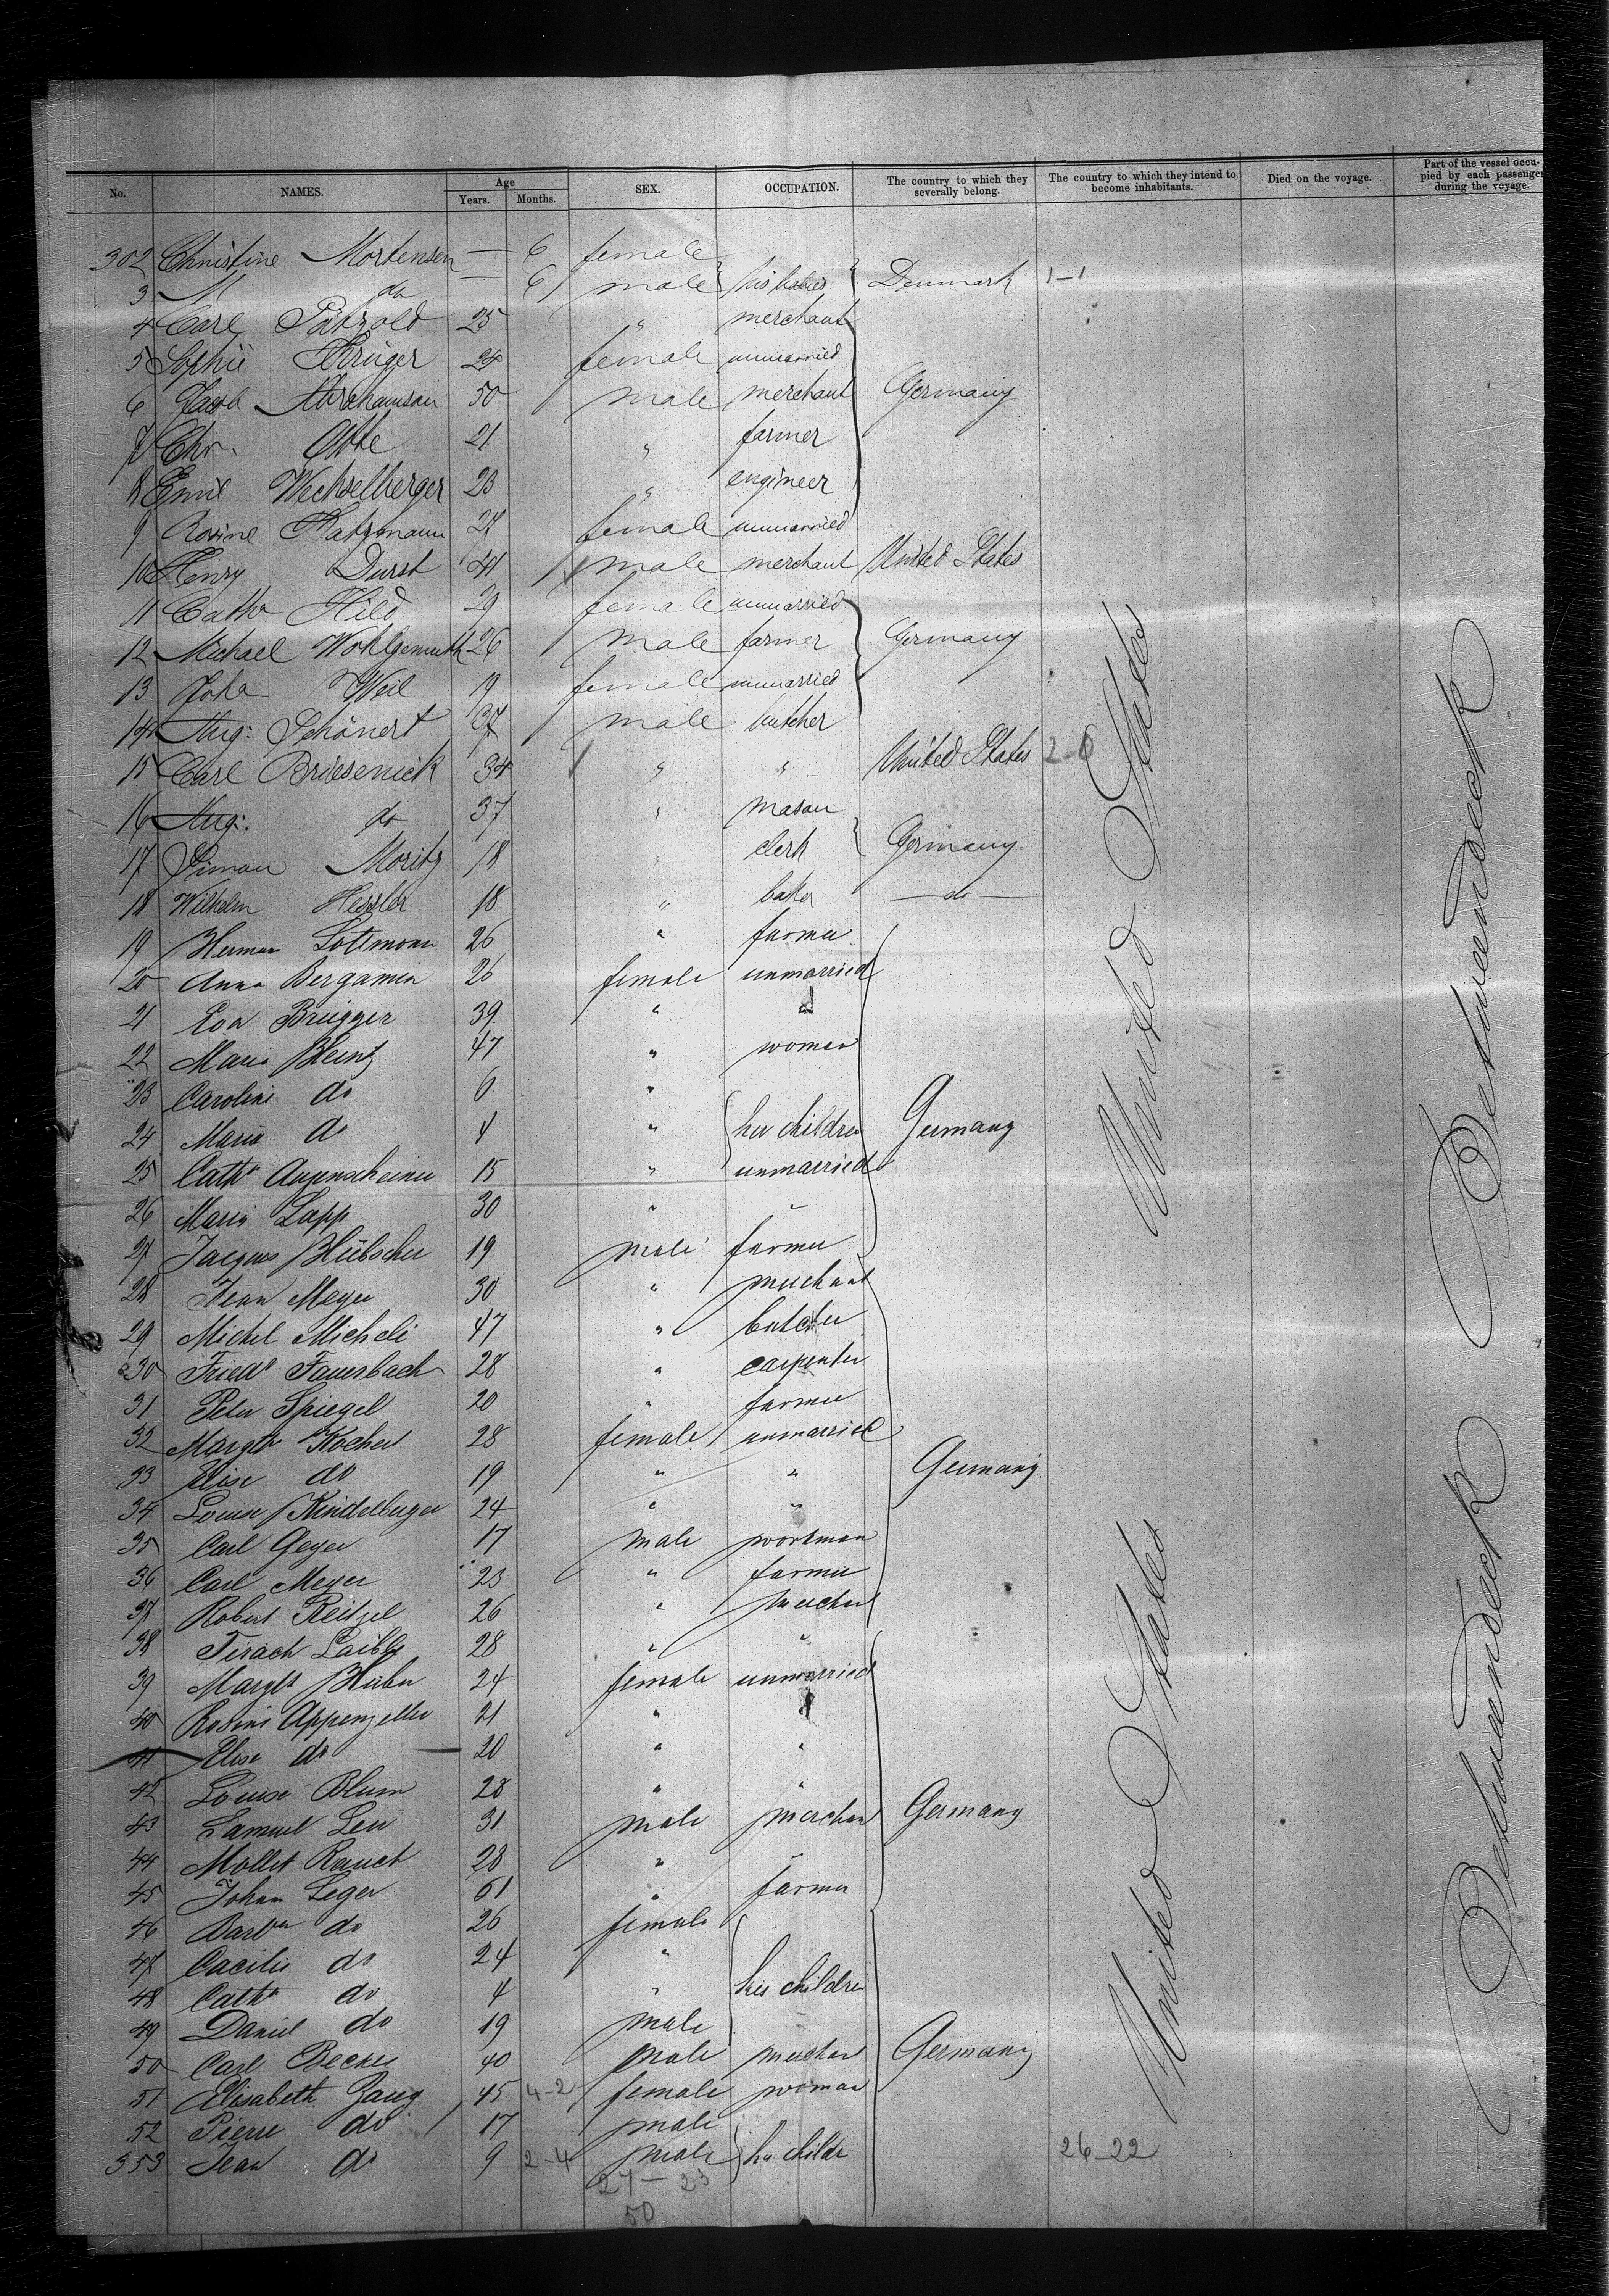 No. NAMES. Age Years. Months. SEX. OCCUPATION. The country to which they severally belong. The country to which they intend to become inhabitants. Died on the voyage. Part of the vessel occupied by each passenger during the voyage.
302 Christine Mortensen — 6 female
3 M do — 6 male his babies Denmark 1-1
4 Carl Pätzold 25 " merchant
5 Sophie Krüger 24 female unmarried
6 Jacob Abrahamson 50 male merchant Germany
7 Chr. Otte 21 " farmer
8 Emil Wechselberger 23 " engineer
9 Rosine Katzmann 27 female unmarried
10 Henry Durst 41 male merchant United States
11 Cathr Hild 29 female unmarried
12 Michael Wohlgemuth 26 male farmer Germany
13 Joha Weil 19 female unmarried
14 Aug: Schönert 37 male butcher
15 Carl Briesenick 34 " " United States 2-0
16 Aug: do 37 " mason
17 Simon Moritz 18 " clerk Germany
18 Wilhelm Hessler 18 " baker — do —
19 Herman Lottmann 26 " farmer
20 Anna Bergamen 26 female unmarried
21 Eva Brügger 39 " "
22 Maria Heintz 47 " woman
23 Caroline do 6 "
24 Maria do 4 " her children Germany
25 Cathr Augenscheiner 15 " unmarried
26 Maria Lapp 30 " "
27 Jacques Hübscher 19 male farmer
28 Jean Meyer 30 " merchant
29 Michel Micheli 47 " butcher
30 Friedr Fauerbach 28 " carpenter
31 Peter Spiegel 20 " farmer
32 Margth Kochert 28 female unmarried
33 Elise do 19 " " Germany
34 Louise Kindelberger 24 " "
35 Carl Geyer 17 male workman
36 Carl Meyer 23 " farmer
37 Robert Reitzel 26 " merchant
38 Laible 28 " "
39 Margth Huber 24 female unmarried
40 Rosine Appenzeller 21 " "
41 Elise do 20 " "
42 Louise Blum 28 " "
43 Samuel Leu 31 male merchan Germany
44 Rauch 28 " "
45 Johan Leger 61 " farmer
46 Barbra do 26 female
47 Cacilie do 24 "
48 Cathr do 4 " his children
49 Daniel do 19 male
50 Carl Becker 40 male merchan Germany
51 Elisabeth Zaug 45 4-2 female woman
52 Pierre do 17 male
353 Jean do 9 2-4 male her childr 26-22
27 — 23
50
United States
United States
Betweendeck
Betweendeck